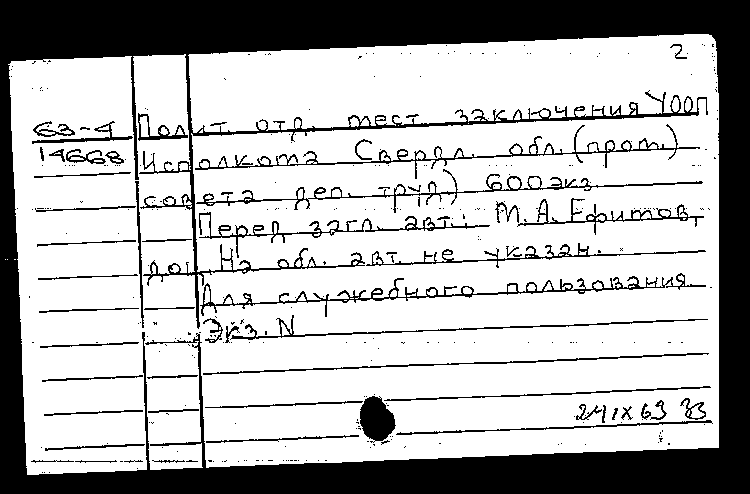 2
63-4 Полит. отд. мест. заключения УООП
14668 Исполкома Свердл. обл. (пром.)
совета деп. труд.) 600 экз.
Перед загл. авт.: М.А. Ефимов,
доц. На обл. авт. не указан.
Для служебного пользования.
Экз. N
24 IX 63